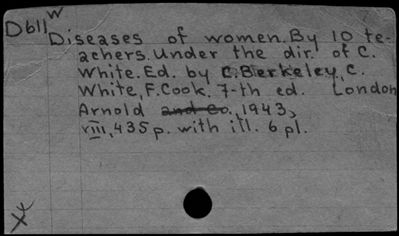 W
D611
Diseases of women. By 10 te-
achers. Under the dir. of C.
White. Ed. by C. Berkeley, C.
White, F. Cook. 7-th ed. London
Arnold and Co., 1943,
VIII, 435 p. with ill. 6 pl.
X